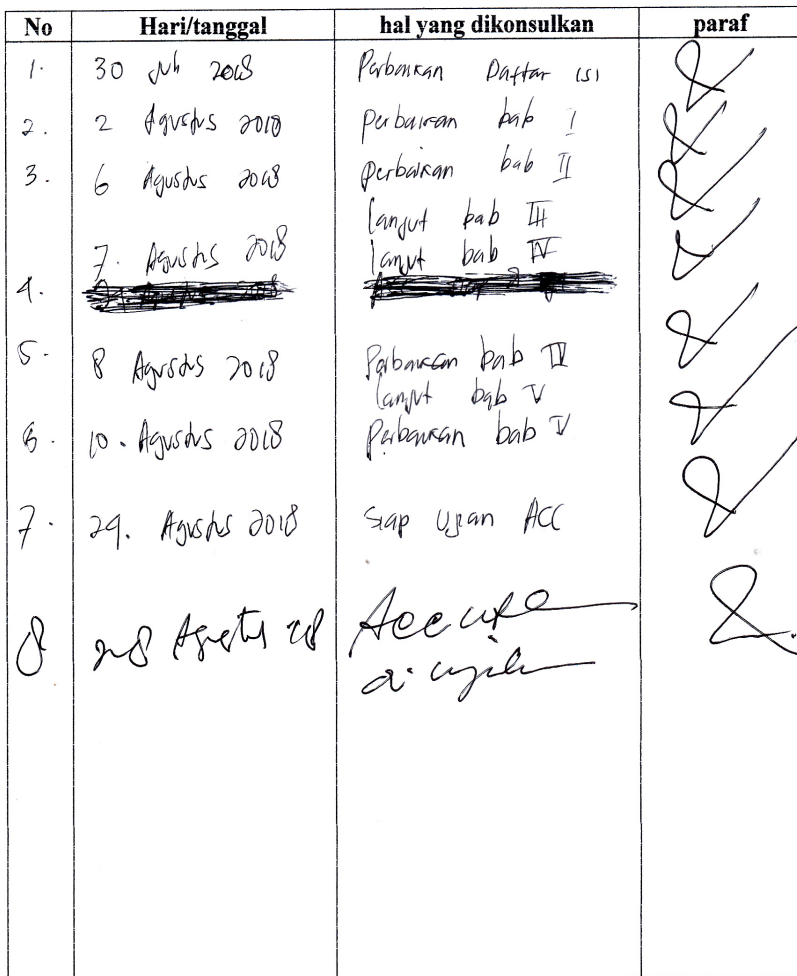 No Hari/tanggal hal yang dikonsulkan paraf
1. 30 Juli 2018 Perbaikan Daftar isi
2. 2 Agustus 2018 perbaikan bab I
3. 6 Agustus 2018 perbaikan bab II
lanjut bab III
7. Agustus 2018 lanjut bab IV
4.
5. 8 Agustus 2018 Perbaikan bab IV
lanjut bab V
6. 10. Agustus 2018 Perbaikan bab V
7. 24. Agustus 2018 Siap Ujian ACC
8 28 Agustus 2018 Acc